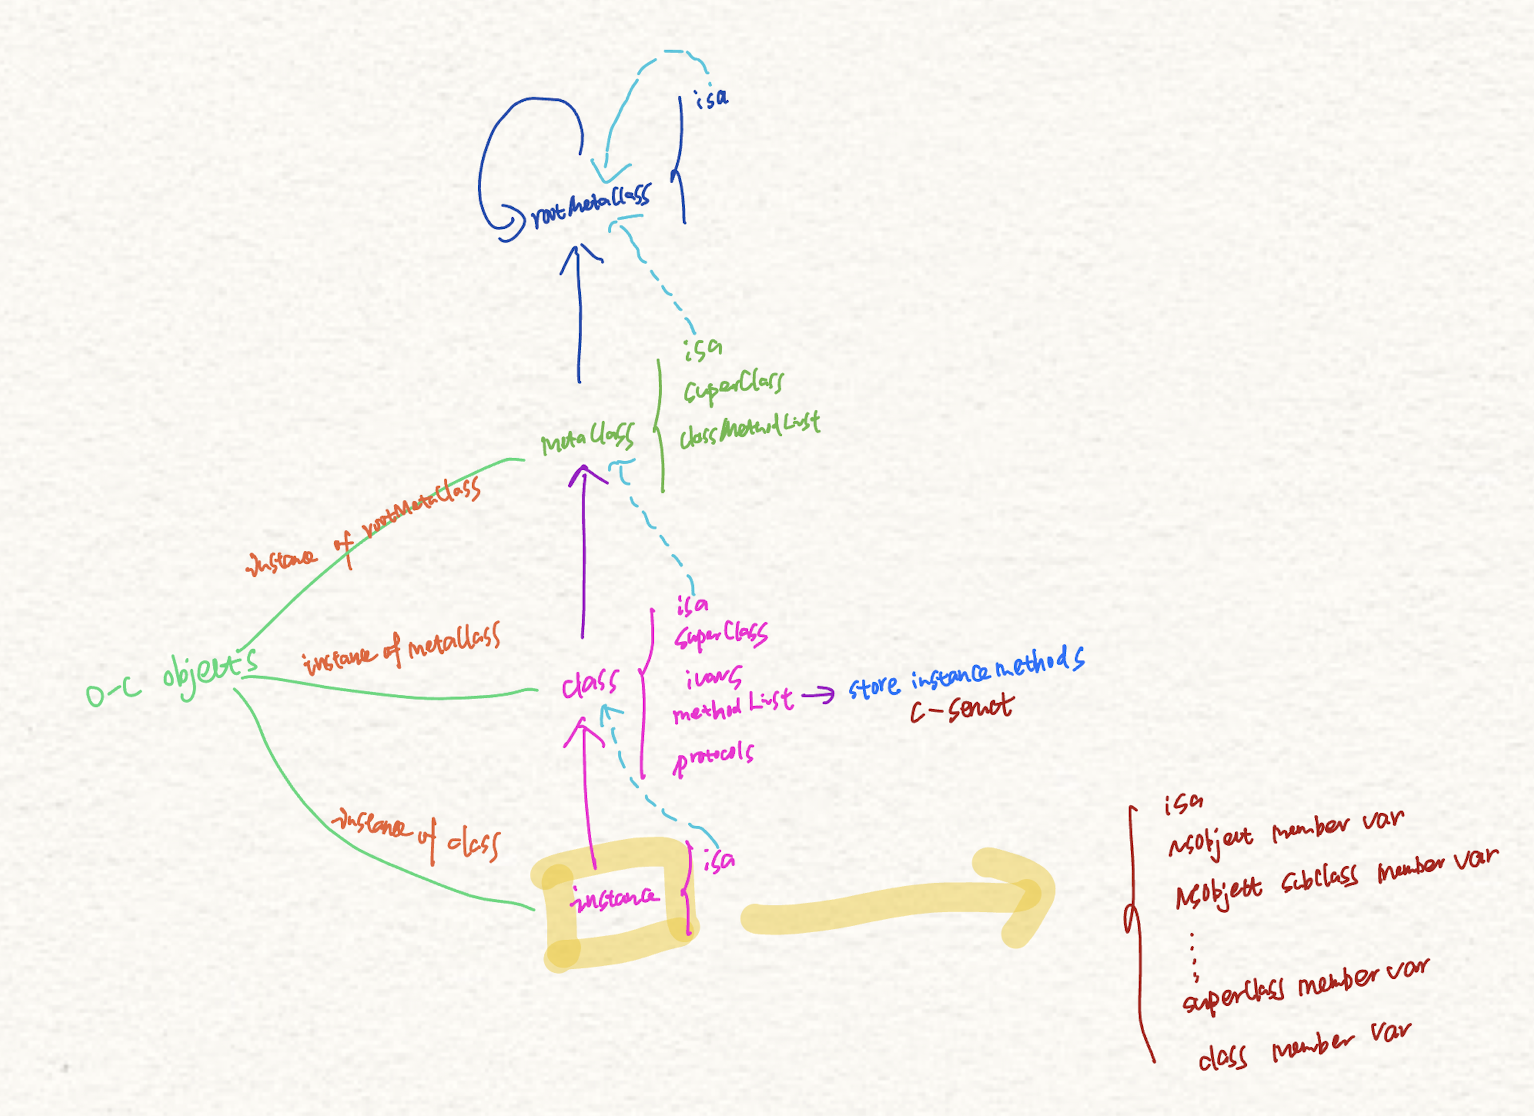 isa
rootMetaClass
isa
superClass
classMethodList
metaClass
instance of rootMetaClass
isa
superClass
instance of metaClass
O-C objects
class
ivars
methodList
store instancemethods
C-struct
protocols
instance of class
isa
instance
isa
NSObject member var
NSObject subclass member var
superClass member var
class member var